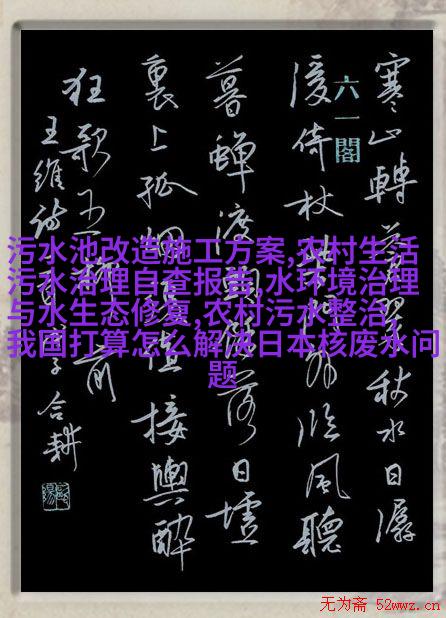 污水池改造施工方案,农村生活
污水治理自查报告,水环境治理
与水生态修复,农村污水整治,
我国打算怎么解决日本核废水问
题
六一閣
寒山轉蒼翠秋水日潺
湲倚杖柴門外臨風聽
暮蟬渡頭餘落日墟
裏上孤烟復值接輿醉
狂歌五柳前
王維詩一首
合耕
无为斋 52wwz.cn